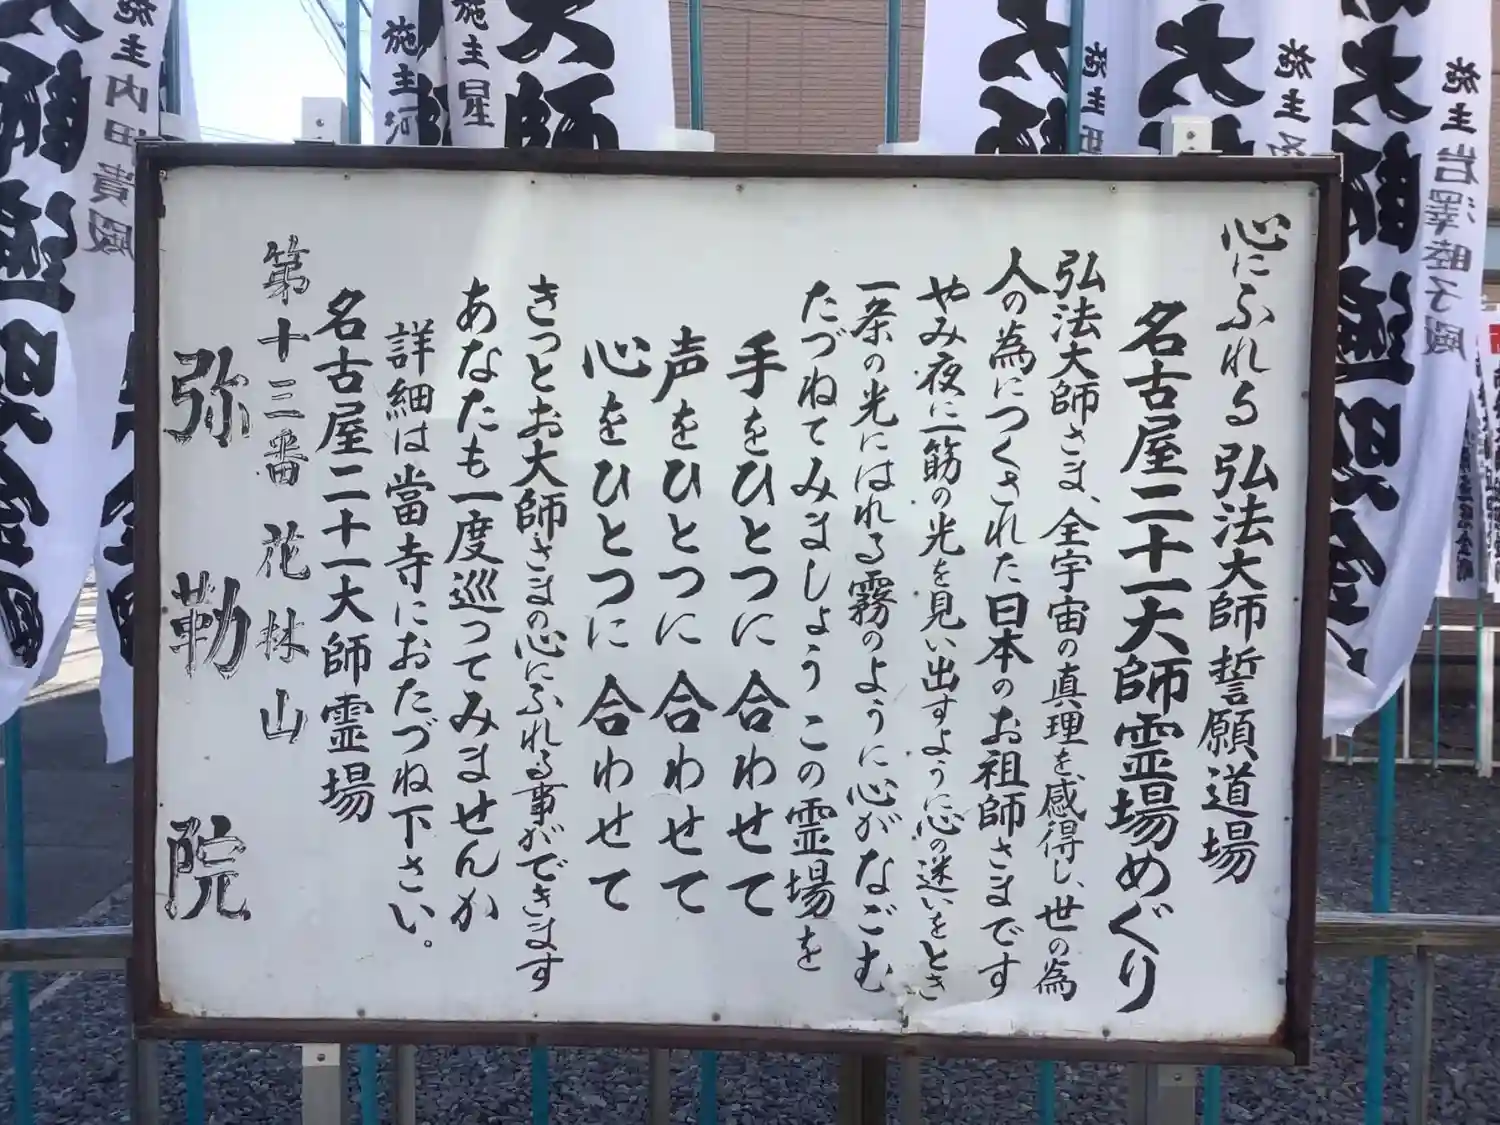 心にふれる 弘法大師誓願道場
名古屋二十一大師霊場めぐり
弘法大師さま、全宇宙の真理を感得し、世の為
人の為につくされた日本のお祖師さまです
やみ夜に一筋の光を見い出すように心の迷いをとき
一条の光にはれる霧のように心がなごむ
たづねてみましょう この霊場を
手をひとつに合わせて
声をひとつに合わせて
心をひとつに合わせて
きっとお大師さまの心にふれる事ができます
あなたも一度巡ってみませんか
詳細は當寺におたづね下さい。
名古屋二十一大師霊場
第十三番 花林山
弥勒院
施主岩澤睦子殿
施主
施主
大師
施主星
施主河
施主内田貴殿